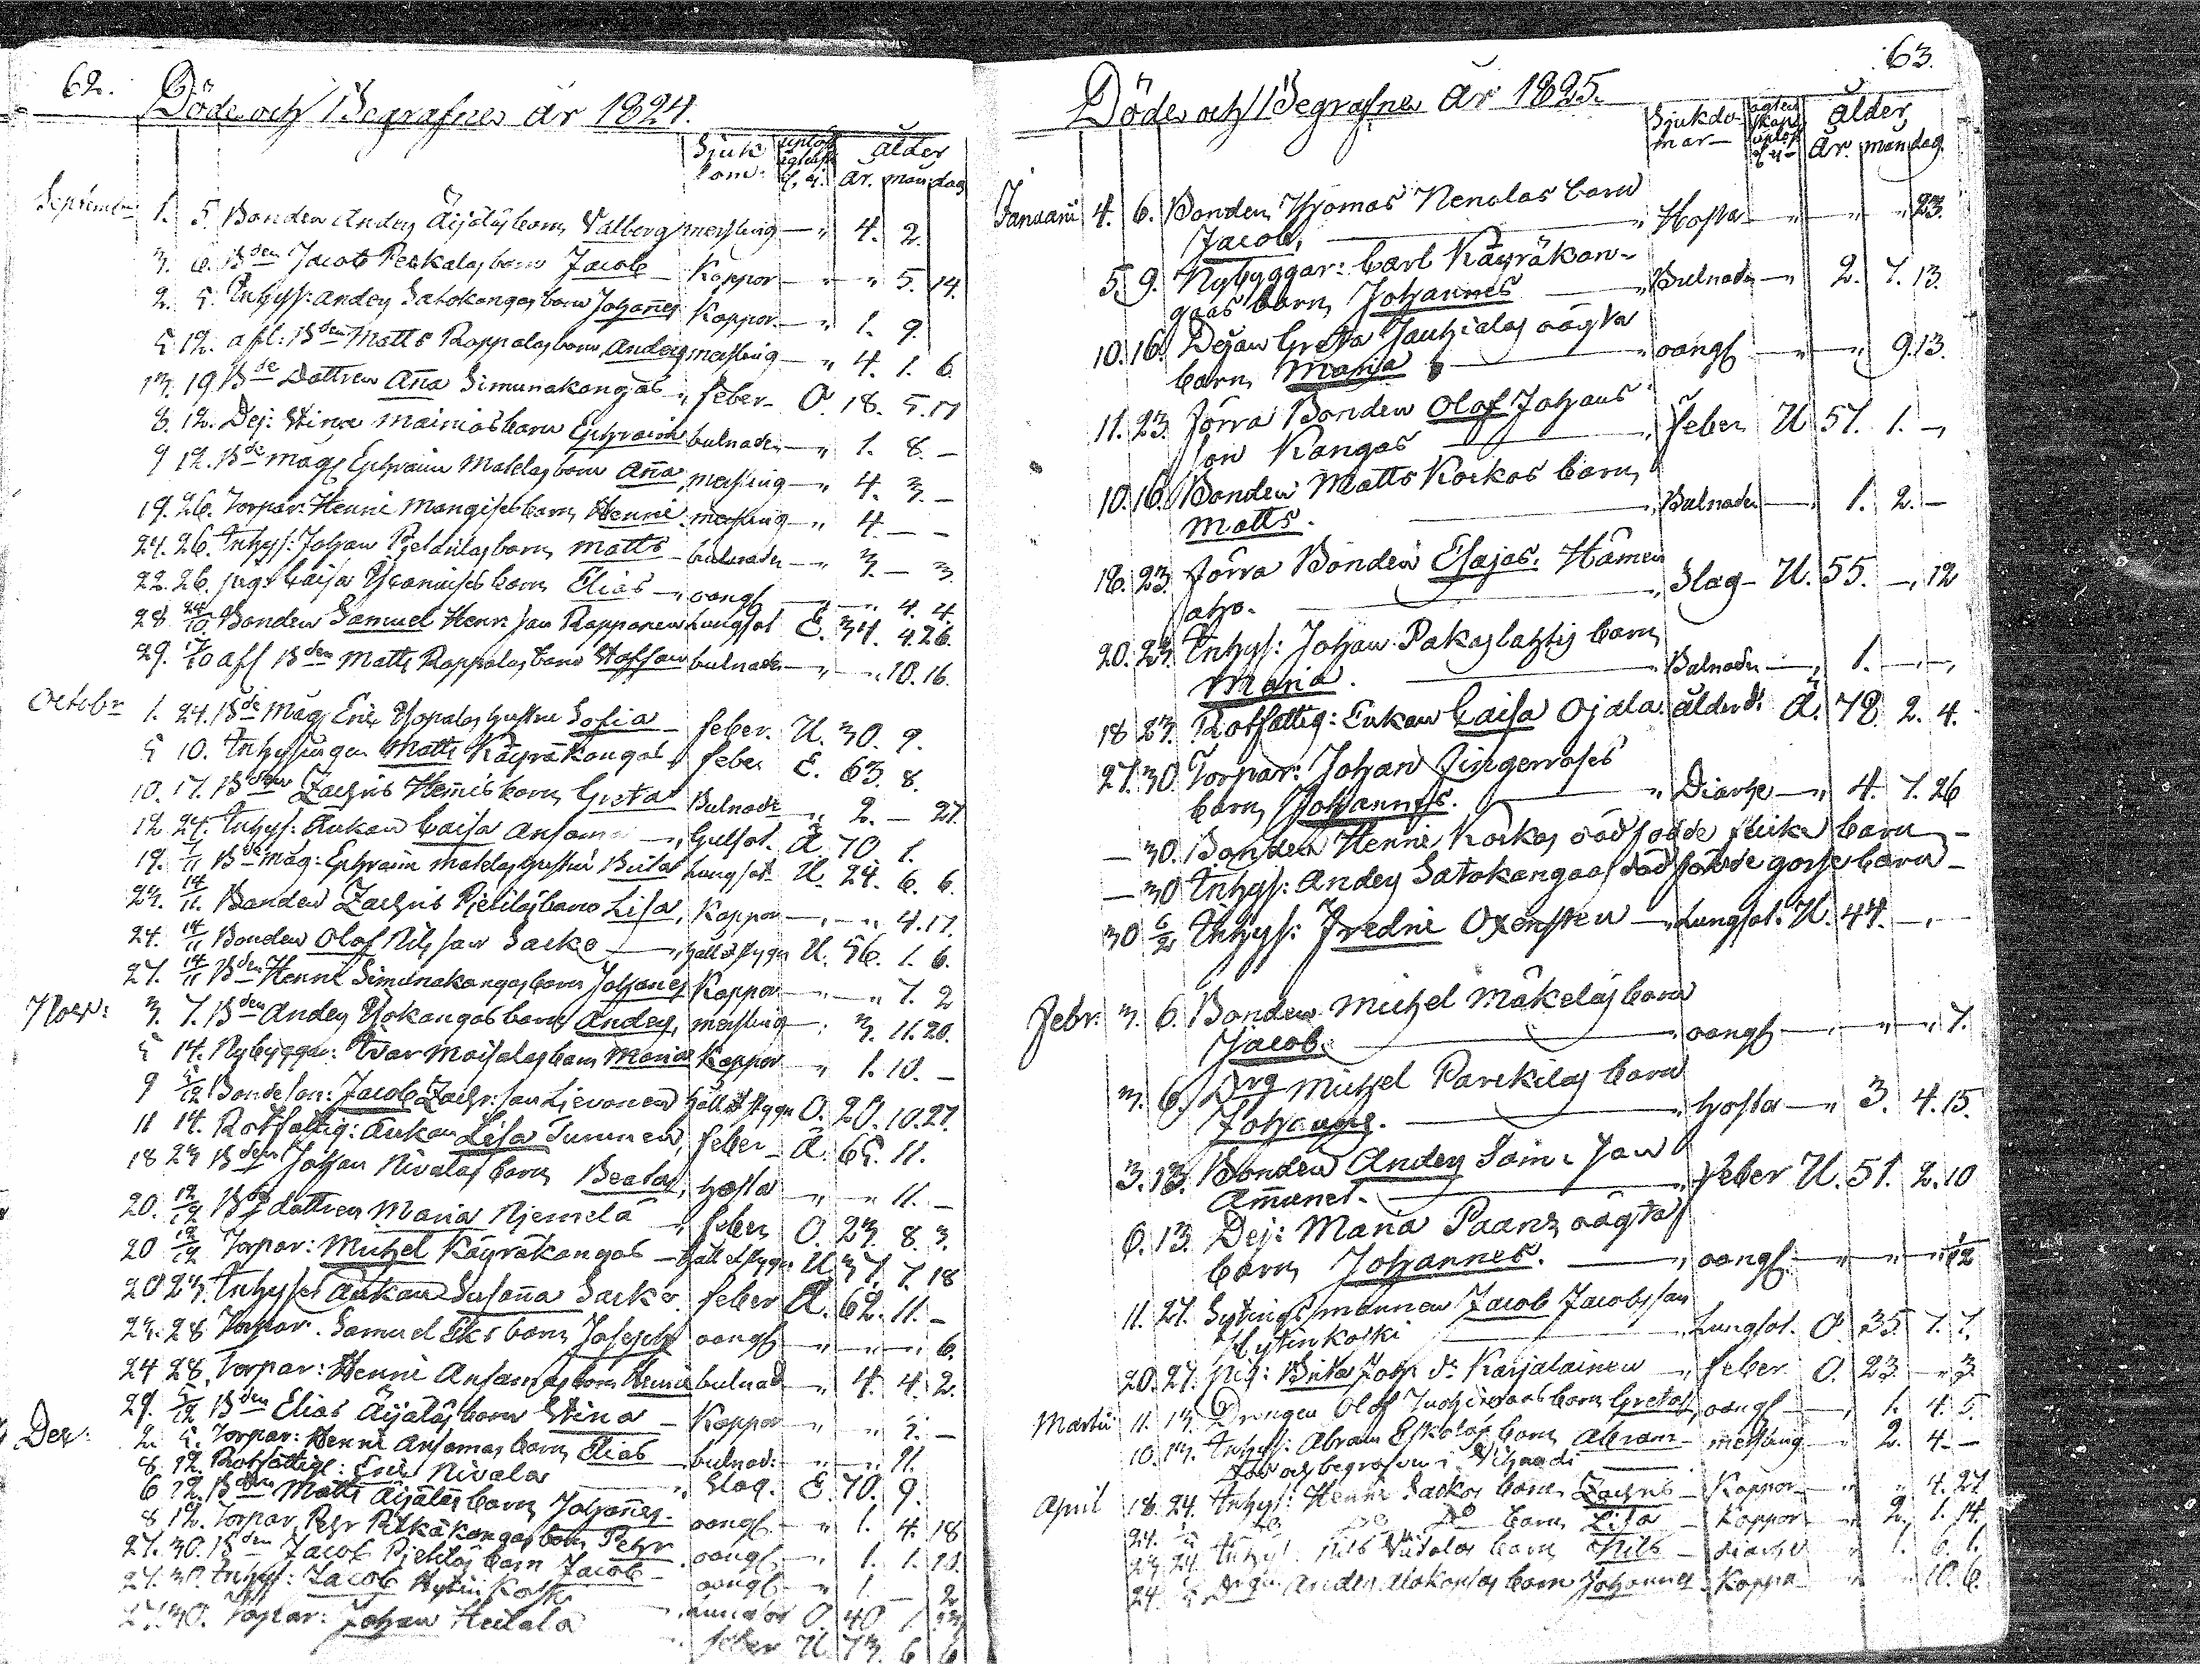 62.
Döde och Begrafne år 1824.
Sjuk
dom:
ålder
år. mån. dag.
September 1. 5. Bonden Anders Äijäläs barn Valborg messling — „ 4. 2.
3. 6. Bden Jacob Peckalas barn Jacob — Koppor — „ „ 5. 14.
2. 5. Inhys: Anders Satokangas barn Johañes Koppor — „ 1. 9.
5. 12. afl: Bden Matts Rappalas barn Anders messling — „ 4. 1. 6.
13. 19 Bde Dottren Aña Simunakangas „ feber — O. 18. 5. 17
8. 12. Dej: Stina Mainios barn Ephraim bulnader — „ 1. 8. —
9 12. Bde mågs Ephraim Matelas barn Aña, messling — „ 4. 3. —
19. 26. Torpar: Henric Mangises barn Henric messling — „ 4. — —
24. 26. Inhys: Johan barn Matts — bulnader — „ 3. — 3.
22. 26. pigs Caisa barn Elias — „ oangf — „ 4. 4.
28 24/10. Bonden Samuel Henr. son Rapponen Lungsot E. 34. 4. 26.
29. 17/10 afl Bden Matts Rappalas barn Staffan bulnader — „ — „ 10. 16.
Octobr 1. 24. Bde mågs Eric hustru Sofia — feber. U. 30. 9.
5 10. Matts Käyräkangas „ feber E. 63. 8.
10. 17. Bden Zachris Hemis barn Greta Bulnade „ 2. — 27.
12 24. Inhys: Enkan Caisa Ansama — „ Gulsot. Ä 70 1.
19. 7/11 Bde måg: Ephraim Matelas hustru Brita Lungsot U. 24. 6. 6.
23. 14/11. Bonden Zachris barn Lisa, Koppor — „ — „ 4. 17.
24. 14/11 Bonden Olof Nils son Sacko — „ håll o stygn U. 56. 1. 6.
27. 14/11 Bden Henric Simunakangas barn Johañes Koppor — „ — „ 7. 2
Nov: 3. 7. Bden Anders barn Anders, messling — „ 3. 11. 20.
5 14. Nybyggar: Ivar Maisalas barn Maria Koppor — „ 1. 10. —
9 5/12 Bondeson: Jacob Zachr. son Lievonen håll o stygn O. 20. 10. 27.
11 14. Rotfattig: Enkan Lisa Tuminen, feber — Ä. 65. 11.
18 23 Bdens Johan Nivalas barn Beata, hosta — „ „ 11. —
20. 12/12 Bde dottren Maria Njemelä „ feber O. 23. 8. 3.
20 12/12 Torpar: Michel Käyräkangas — håll o stygn U 37. 7. 18
20 23. Inhyses Enkan Susaña Sacko. feber Ä. 62. 11. —
23. 28 Torpar. Samuel Eks barn Joseph oangf — „ — „ — „ 6.
24 28. Torpar: Henric Ansamas barn Henric bulnad — „ 4. 4. 2.
29. 5/12 Bden Elias Äijäläs barn Stina — Koppor — „ „ 3. —
Dec: 2. 5. Torpar: Henric Ansamas barn Elias — bulnad: — „ — „ 11.
8 12. Rotfattige: Eric Nivala „ Slag. E. 70. 9.
6 12. Bden Matts Äijäläs barn Johañes. oangf — „ 1. 4. 18
8 12. Torpar. Pehr Pitkäkangas barn Pehr oangf — „ 1. 1. 18.
27. 30. Bden Jacob barn Jacob — oangf — „ 1. — 2
27. 30. Inhys: Jacob Hytinkoski O. 40
27. 30. Torpar: Johan Heikala feber U. 73. 6 6
63.
Döde och Begrafne År 1825.
Sjukdo-
mar —
ålder
år. mån. dag.
Januarii 4. 6. Bonden Thomas Nenolas barn
Jacob, — „ Hosta — „ — „ 23.
5. 9. Nybyggar: Carl Käyräkan-
gaas barn Johannes — „ Bulnader — „ 2. 7. 13.
10. 16. Dejan Greta Jauhialas oägta
barn Maria — „ oangf — „ — „ 9. 13.
11. 23. förra Bonden Olof Johans
son Kangas — „ feber U 57. 1. —
10. 16. Bonden Matts Korkos barn
Matts. — „ Bulnader — „ 1. 2. —
18. 23. förra Bonden Esajas Hämen
aho. — „ Slag — U. 55. — „ 12
20. 23. Inhys: Johan Pakaslahtis barn
Maria. — „ Bulnader — „ 1. — „ —
18 23. Rotfattig: Enkan Caisa Ojala ålderd: Ä. 78. 2. 4.
27. 30. Torpar: Johan Fingerroses
barn Johannes. — „ Diarhe — „ 4. 7. 26
— 30. Bonden Henric Korkos dödfödde flicke barn —
— 30 Inhys: Anders Satokangas dödfödde gosse barn —
30 6/2 Inhys: Fredric Oxensten — „ Lungsot. U. 44. — „ —
Febr: 3. 6. Bonden Michel Mäkeläs barn
Jacob. — „ oangf — „ — „ — „ 7.
3. 6. Drg Michel Parckilas barn
Johanne. — „ hosta — „ 3. 4. 15.
3. 13. Bonden Anders Sam: son
Amunet. — „ feber U. 51. 2. 10
6. 13. Dej: Maria Paanz oägta
barn Johannes. — „ oangf. — „ — „ — „ 12
11. 27. Sytningsmannen Jacob Jacobsson
Hytinkoski — „ Lungsot. O. 35. 7. 7.
20. 27. pig: Brita Joh. dr Karjalainen — „ feber O. 23. — „ 3
Martii 11. 13. Drengen Olof barn Greta, oangf — „ 1. 4. 5.
10. 13. Inhys: Abram Eskolas barn Abram — messling — „ 2. 4. —
död och begrafven i
April 18. 24. Inhys: Henric Sackos barn Zachris — Koppor — „ „ 4. 27
24. Do Do barn Lisa — Koppor — „ 2. 1. 14.
23. 24 Inhys: Nils barn Nils — diarhe „ 1. 6. 1.
24. Drgn Anders barn Johannes Koppor — „ „ 10. 6.